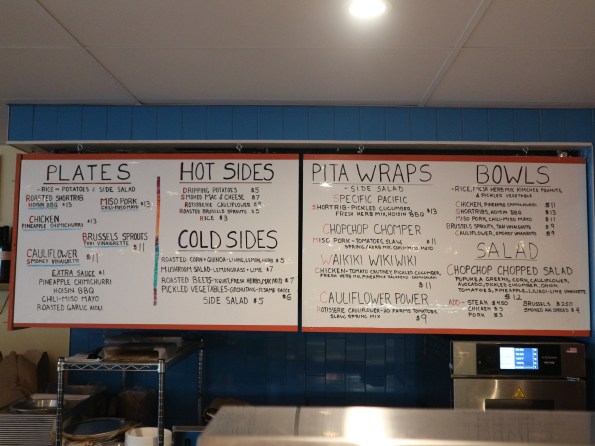 PLATES
-RICE or POTATOES & SIDE SALAD
ROASTED SHORTRIB
HOISIN BBQ $13
MISO PORK $13
CHILI-MISO MAYO
CHICKEN $13
PINEAPPLE CHIMICHURRI
BRUSSELS SPROUTS
THAI VINAIGRETTE $11
CAULIFLOWER $11
SMOKEY VINAIGRETTE
EXTRA SAUCE $1
PINEAPPLE CHIMICHURRI
HOISIN BBQ
CHILI-MISO MAYO
ROASTED GARLIC AIOLI
HOT SIDES
DRIPPING POTATOES $5
SMOKED MAC & CHEESE $7
ROTISSERIE CAULIFLOWER $9
ROASTED BRUSSELS SPROUTS $5
RICE $3
COLD SIDES
ROASTED CORN + QUINOA - LIME, HERB $5
MUSHROOM SALAD - LEMONGRASS + LIME $7
ROASTED BEETS - FRESH HERBS, $7
PICKLED VEGETABLES - SESAME SAUCE $6
SIDE SALAD $5
PITA WRAPS
-SIDE SALAD
SPECIFIC PACIFIC
SHORTRIB - PICKLED CUCUMBER, $13
FRESH HERB MIX, HOISIN BBQ
CHOPCHOP CHOMPER
MISO PORK - TOMATOES, SLAW, $11
SPRING/HERB MIX, CHILI-MISO MAYO
WAIKIKI WIKIWIKI
CHICKEN - TOMATO CHUTNEY, PICKLED CUCUMBER,
FRESH HERB MIX, PINEAPPLE
$11
CAULIFLOWER POWER
ROTISSERIE CAULIFLOWER - FARMS TOMATOES,
SLAW, SPRING MIX $9
BOWLS
-RICE, HERB MIX, KIMCHEE, PEANUTS,
& PICKLED VEGETABLES
CHICKEN, PINEAPPLE CHIMI $11
SHORTRIBS, HOISIN BBQ $13
MISO PORK, CHILI-MISO MAYO $11
BRUSSELS SPROUTS, THAI VIN $9
CAULIFLOWER, SMOKEY VINAIGRETTE $9
SALAD
CHOPCHOP CHOPPED SALAD
GREENS, CORN, CAULIFLOWER,
AVOCADO, PICKLED CUCUMBER, ONION,
TOMATOES, PINEAPPLE, VINAIGRETTE
$12
ADD - STEAK $4.50 BRUSSELS $2.50
CHICKEN $3 SMOKED AHI SPREAD $4
PORK $3